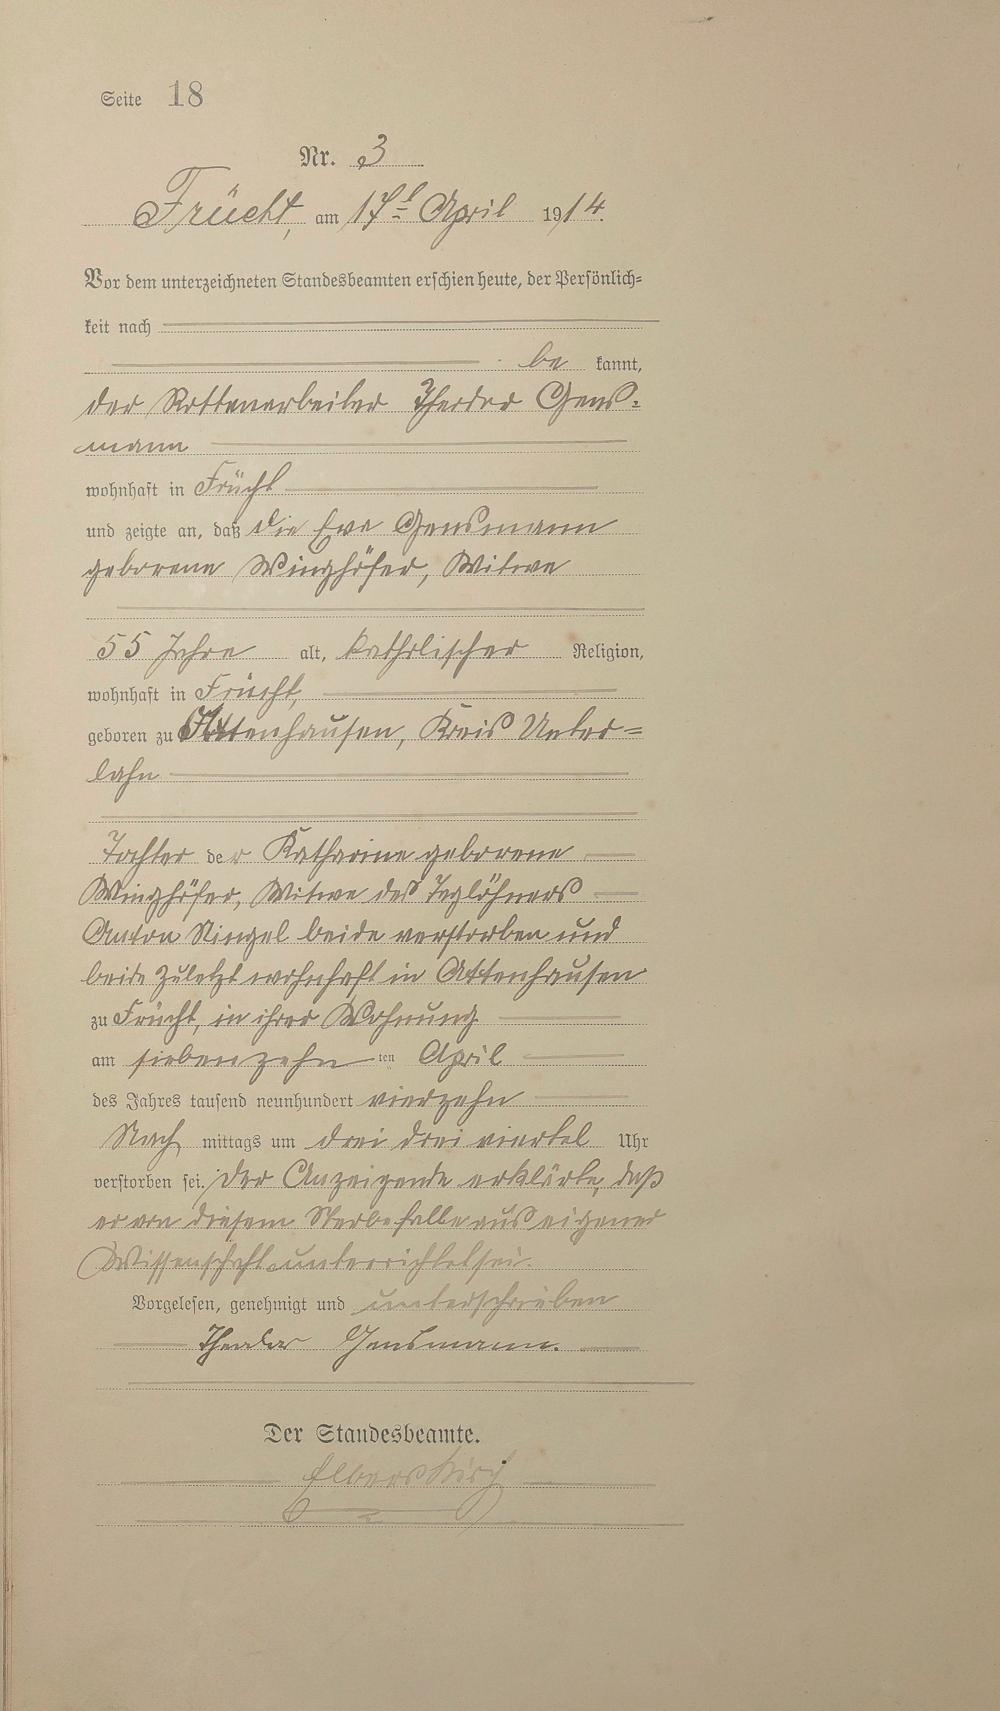 Seite 18
Nr. 3
Frücht, am 17t April 1914.
Vor dem unterzeichneten Standesbeamten erschien heute, der Persönlich-
keit nach
be kannt,
der Rottenarbeiter Theodor Gens-
mann
wohnhaft in Frücht
und zeigte an, daß die Eva Gensmann
geborene Winghöfer, Witwe
55 Jahre alt, katholischer Religion,
wohnhaft in Frücht,
geboren zu Attenhausen, Kreis Unter-
lahn
Tochter der Katharine geborene
Winghöfer, Witwe des Taglöhners
Anton beide verstorben und
beide zuletzt wohnhaft in Attenhausen
zu Frücht, in ihrer Wohnung
am siebenzehn ten April
des Jahres tausend neunhundert vierzehn
Nach mittags um drei drei viertel Uhr
verstorben sei. Der Anzeigende erklärte, daß
er von diesem Sterbefalle aus eigener
Wissenschaft unterrichtet sei.
Vorgelesen, genehmigt und unterschrieben
Theodor Gensmann.
Der Standesbeamte.